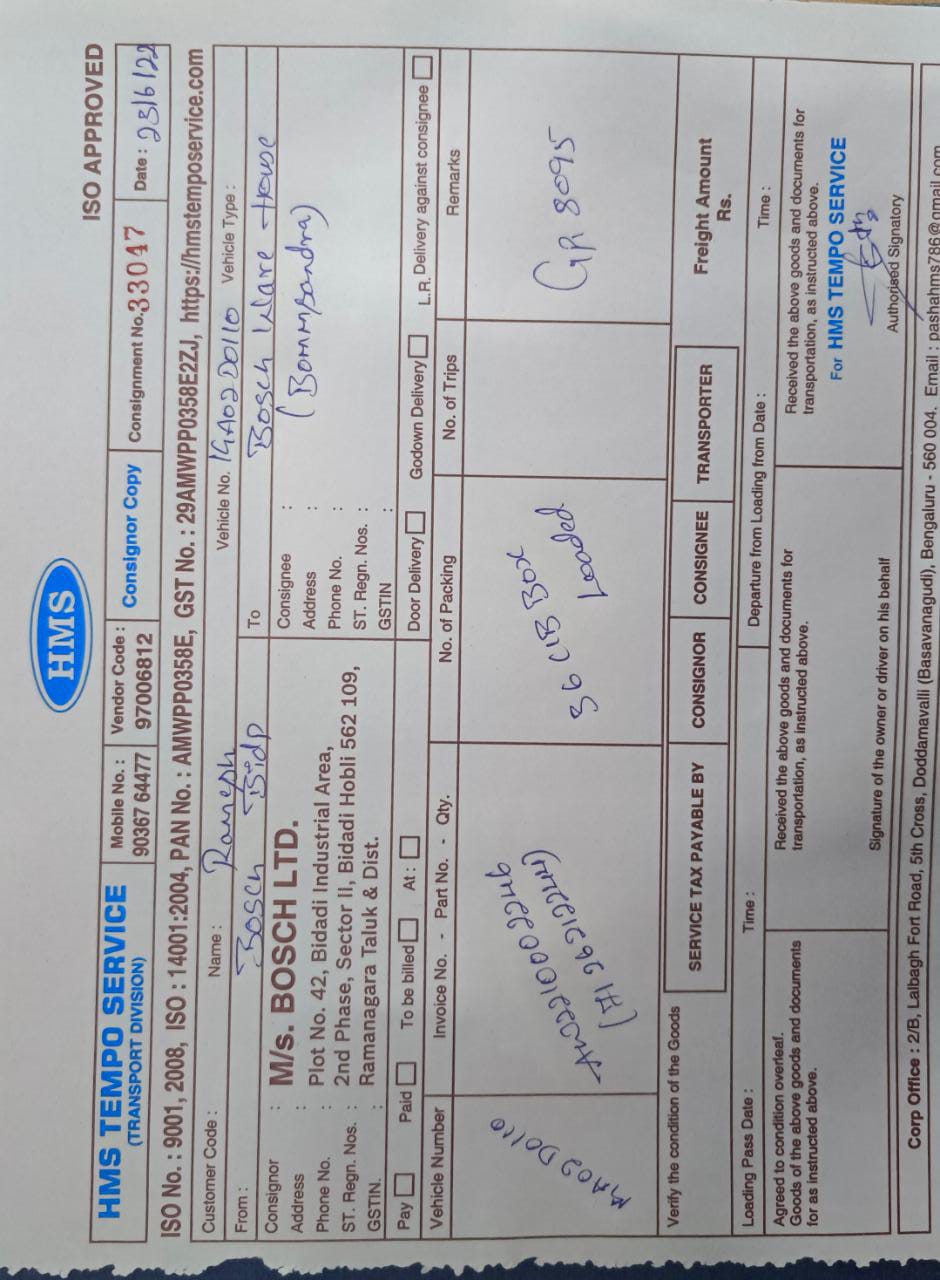 HMS
ISO APPROVED
HMS TEMPO SERVICE
(TRANSPORT DIVISION)
Mobile No. :
90367 64477
Vendor Code :
97006812
Consignor Copy
Consignment No. 33047
Date : 23/6/22
ISO No. : 9001, 2008, ISO : 14001:2004, PAN No. : AMWPP0358E, GST No. : 29AMWPP0358E2ZJ, https://hmstemposervice.com
Customer Code :
Name : Ramesh
Vehicle No. KA02D0110
Vehicle Type :
From : Bosch Bidp
To Bosch Ware House
(Bommsandra)
Consignor :
Address :
Phone No. :
ST. Regn. Nos. :
GSTIN. :
M/s. BOSCH LTD.
Plot No. 42, Bidadi Industrial Area,
2nd Phase, Sector II, Bidadi Hobli 562 109,
Ramanagara Taluk & Dist.
Consignee :
Address :
Phone No. :
ST. Regn. Nos. :
GSTIN :
Pay Paid To be billed At :
Door Delivery Godown Delivery L.R. Delivery against consignee
Vehicle Number
Invoice No. - Part No. - Qty.
No. of Packing
No. of Trips
Remarks
KA02D0110
AW22100002246
(7126212244)
36 CIB BOX
Loaded
8095
Verify the condition of the Goods
SERVICE TAX PAYABLE BY
CONSIGNOR
CONSIGNEE
TRANSPORTER
Freight Amount
Rs.
Loading Pass Date : Time :
Departure from Loading from Date : Time :
Agreed to condition overleaf.
Goods of the above goods and documents
for as instructed above.
Received the above goods and documents for
transportation, as instructed above.
Signature of the owner or driver on his behalf
Received the above goods and documents for
transportation, as instructed above.
For HMS TEMPO SERVICE
Authorised Signatory
Corp Office : 2/B, Lalbagh Fort Road, 5th Cross, Doddamavalli (Basavanagudi), Bengaluru - 560 004. Email : pashahms786@gmail.com